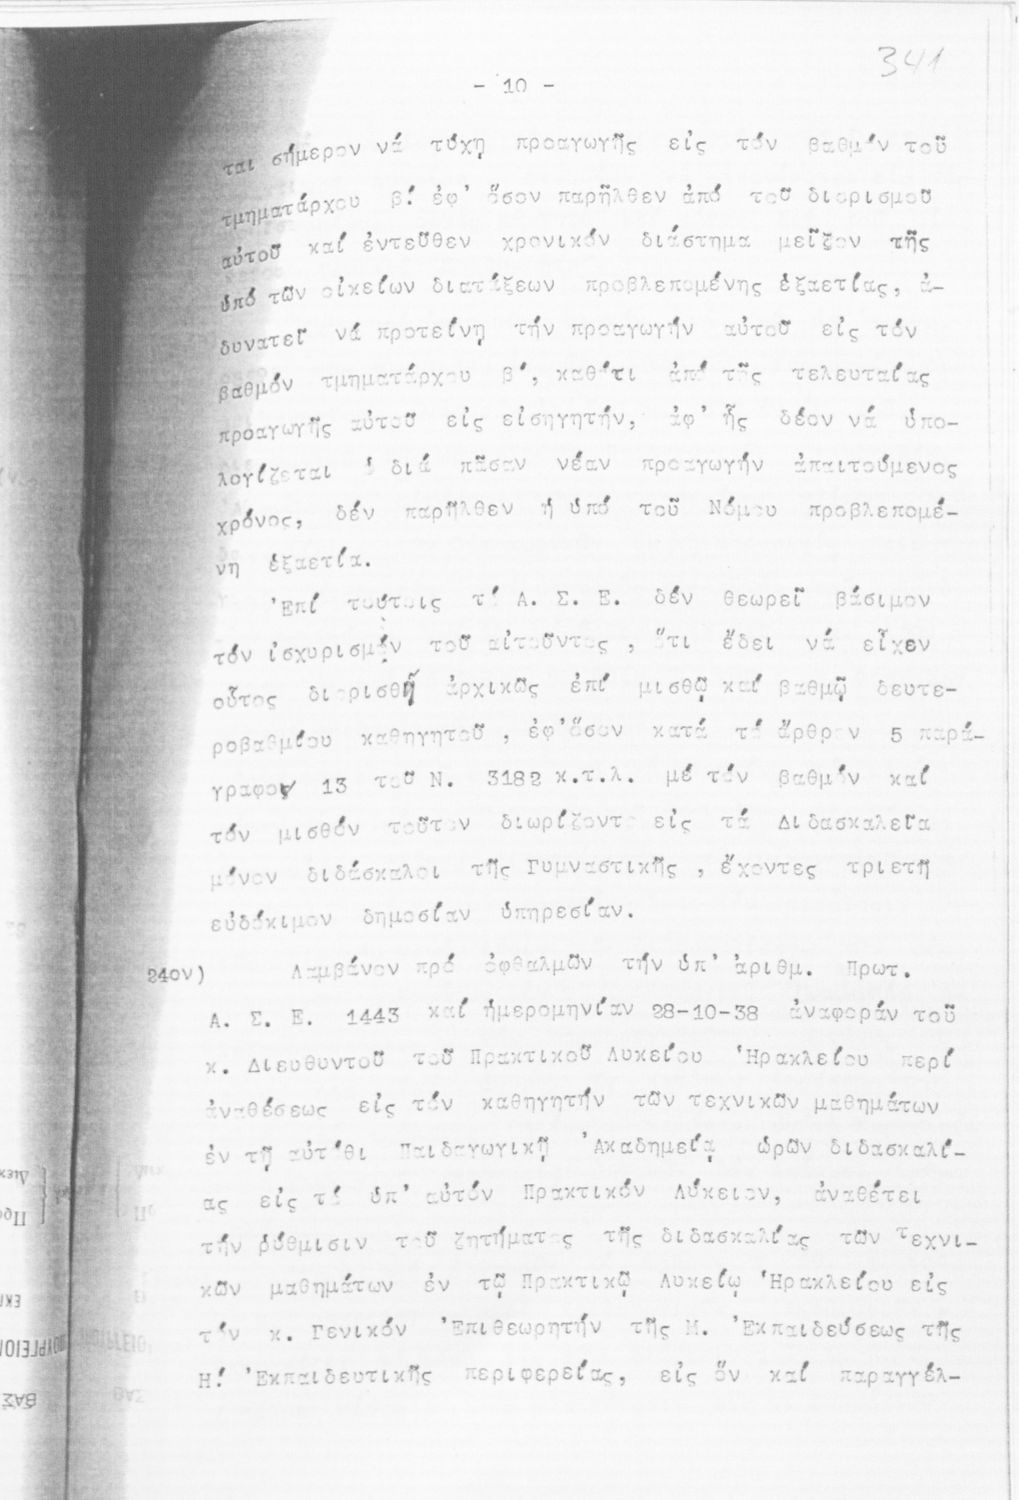 341
- 10 -
ται σήμερον νά τύχῃ προαγωγῆς εἰς τόν βαθμόν τοῦ
τμηματάρχου β! ἐφ' ὅσον παρῆλθεν ἀπό τοῦ διορισμοῦ
αὐτοῦ καί ἐντεῦθεν χρονικόν διάστημα μεῖζον τῆς
ὑπό τῶν οἰκείων διατάξεων προβλεπομένης ἑξαετίας, ἀ-
δυνατεῖ νά προτείνῃ τήν προαγωγήν αὐτοῦ εἰς τόν
βαθμόν τμηματάρχου β', καθότι ἀπό τῆς τελευταίας
προαγωγῆς αὐτοῦ εἰς εἰσηγητήν, ἀφ' ἧς δέον νά ὑπο-
λογίζεται ὁ διά πᾶσαν νέαν προαγωγήν ἀπαιτούμενος
χρόνος, δέν παρῆλθεν ἡ ὑπό τοῦ Νόμου προβλεπομέ-
νη ἑξαετία.
'Επί τούτοις τό Α. Σ. Ε. δέν θεωρεῖ βάσιμον
τόν ἰσχυρισμόν τοῦ αἰτοῦντος , ὅτι ἔδει νά εἶχεν
οὗτος διορισθῆ ἀρχικῶς ἐπί μισθῷ καί βαθμῷ δευτε-
ροβαθμίου καθηγητοῦ , ἐφ'ὅσον κατά τό ἄρθρον 5 παρά-
γραφος 13 τοῦ Ν. 3182 κ.τ.λ. μέ τόν βαθμόν καί
τόν μισθόν τοῦτον διωρίζοντο εἰς τά Διδασκαλεῖα
μόνον διδάσκαλοι τῆς Γυμναστικῆς , ἔχοντες τριετῆ
εὐδόκιμον δημοσίαν ὑπηρεσίαν.
24ον) Λαμβάνον πρό ὀφθαλμῶν τήν ὑπ' ἀριθμ. Πρωτ.
Α. Σ. Ε. 1443 καί ἡμερομηνίαν 28-10-38 ἀναφοράν τοῦ
κ. Διευθυντοῦ τοῦ Πρακτικοῦ Λυκείου 'Ηρακλείου περί
ἀναθέσεως εἰς τόν καθηγητήν τῶν τεχνικῶν μαθημάτων
ἐν τῇ αὐτόθι Παιδαγωγικῇ 'Ακαδημείᾳ ὡρῶν διδασκαλί-
ας εἰς τό ὑπ' αὐτόν Πρακτικόν Λύκειον, ἀναθέτει
τήν ρύθμισιν τοῦ ζητήματος τῆς διδασκαλίας τῶν τεχνι-
κῶν μαθημάτων ἐν τῷ Πρακτικῷ Λυκείῳ 'Ηρακλείου εἰς
τόν κ. Γενικόν 'Επιθεωρητήν τῆς Μ. 'Εκπαιδεύσεως τῆς
Η! 'Εκπαιδευτικῆς περιφερείας, εἰς ὅν καί παραγγέλ-